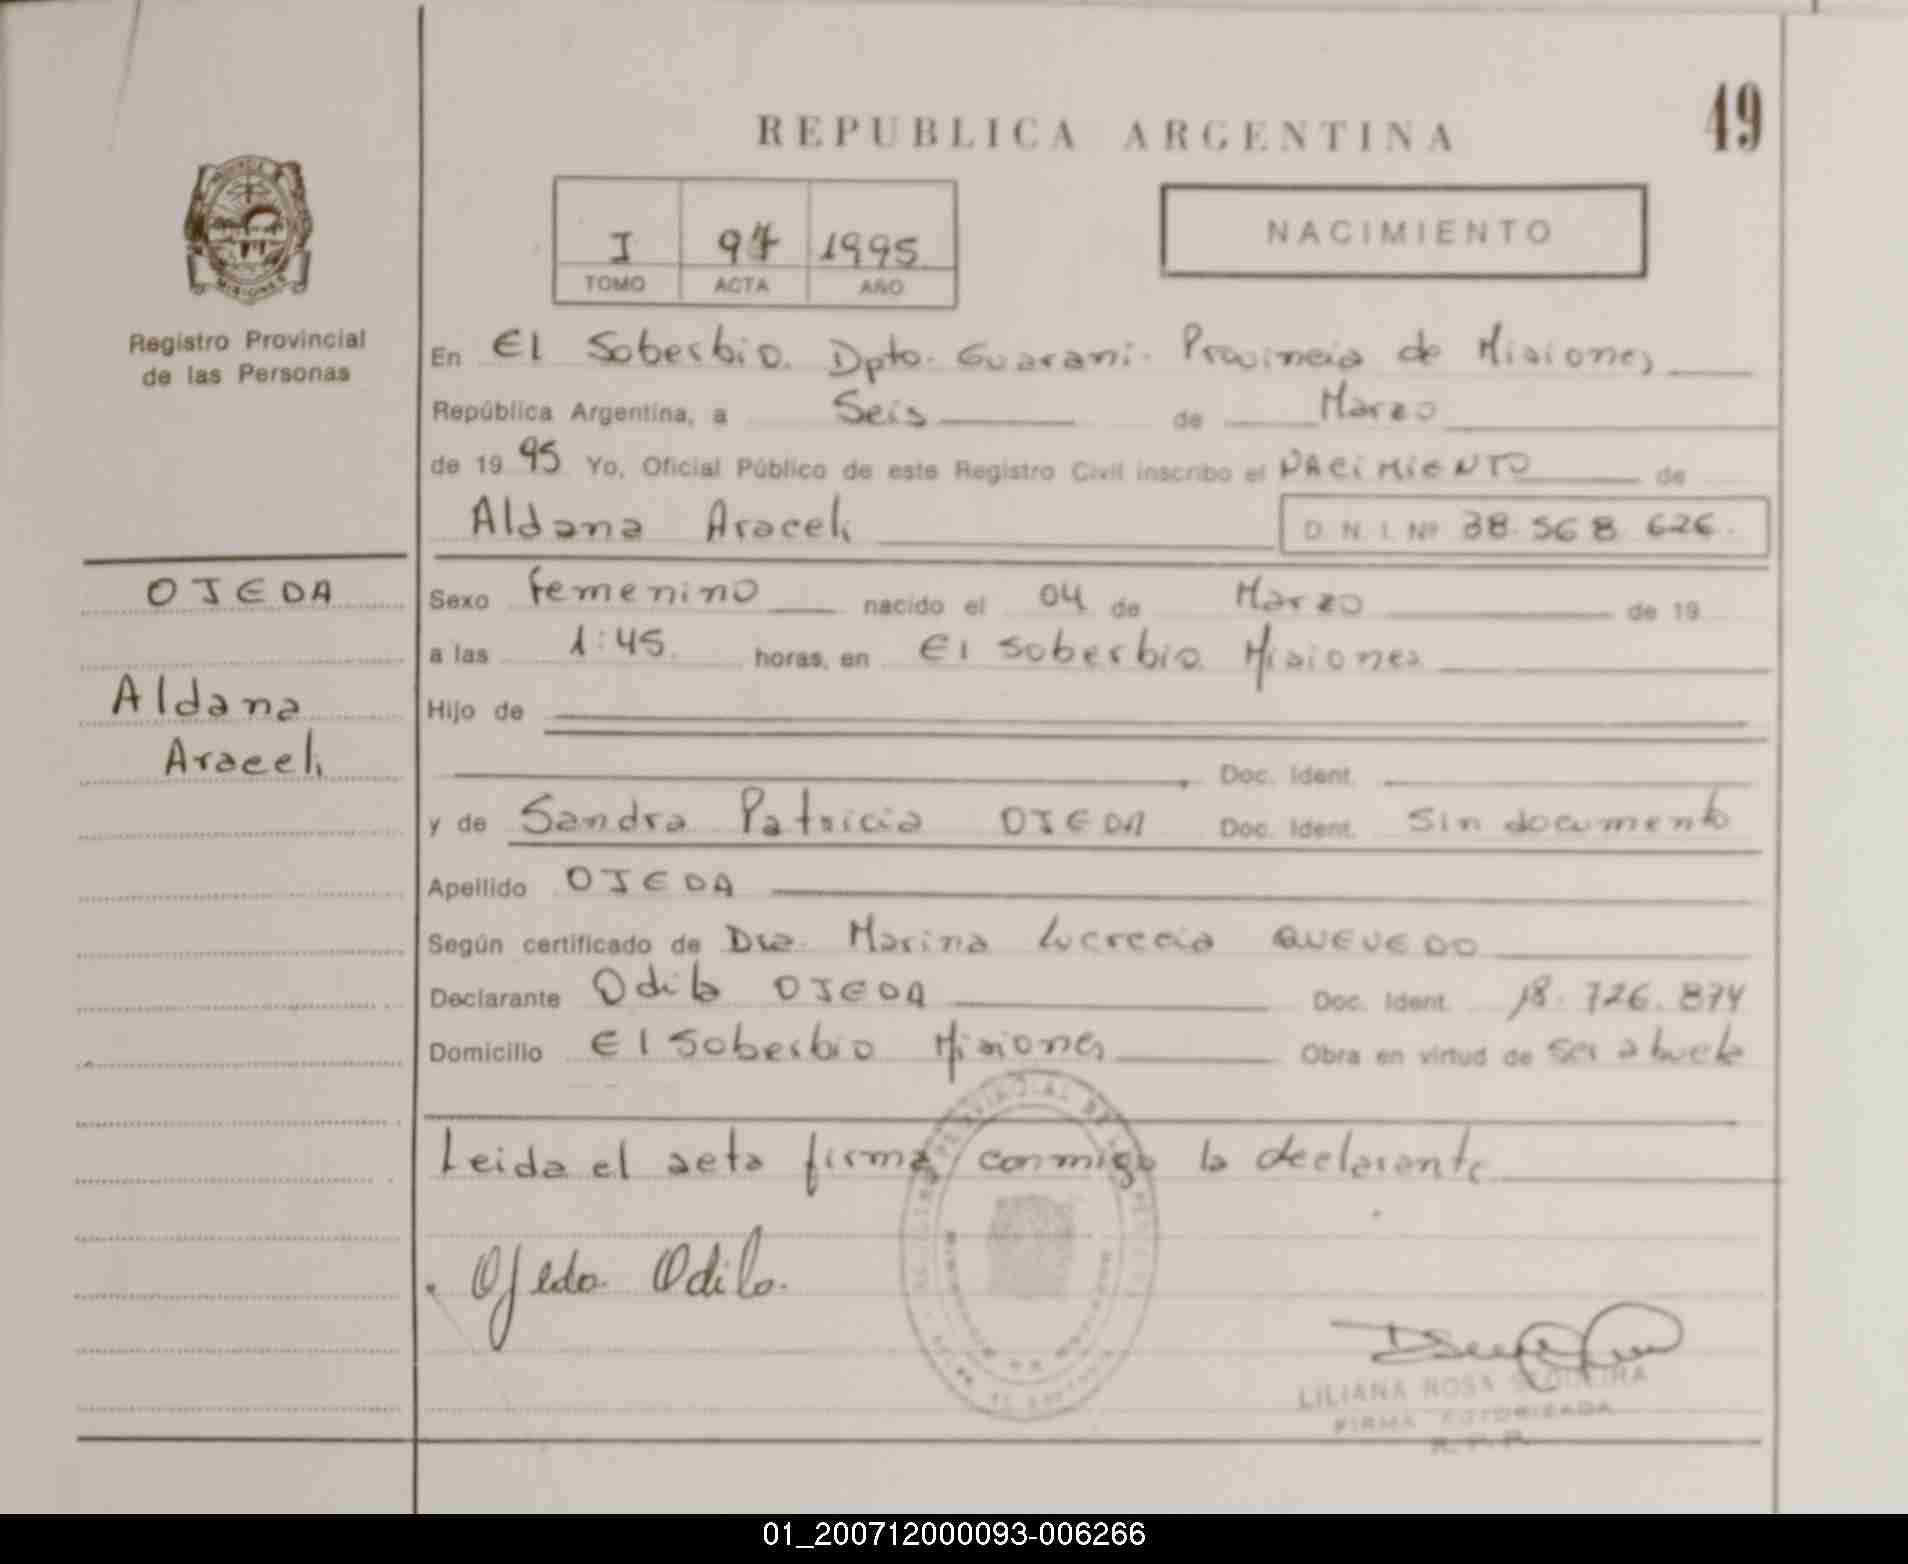 REPUBLICA ARGENTINA
49
NACIMIENTO
I 1995
TOMO ACTA AÑO
MISIONES
Registro Provincial
de las Personas
En El Soberbio. Dpto. Guarani. Provincia de Misiones
República Argentina, a Seis de Marzo
de 19 95 Yo, Oficial Público de este Registro Civil inscribo el NACIMIENTO de
Aldana Araceli D. N. I. Nº 38.568.626.
OJEDA
Aldana
Araceli
Sexo femenino nacido el 04 de Marzo de 19
a las 1:45. horas, en El Soberbio Misiones
Hijo de
Doc. Ident.
y de Sandra Patricia OJEDA Doc. Ident. Sin documento
Apellido OJEDA
Según certificado de Dra. Marina Lucrecia QUEVEDO
Declarante Odila OJEDA Doc. Ident. 18.726.874
Domicilio El Soberbio Misiones Obra en virtud de ser abuela
Leida el acta firma conmigo la declarante
Ojeda Odila.
LILIANA ROSA SEQUEIRA
FIRMA AUTORIZADA
R. P. P.
01_200712000093-006266